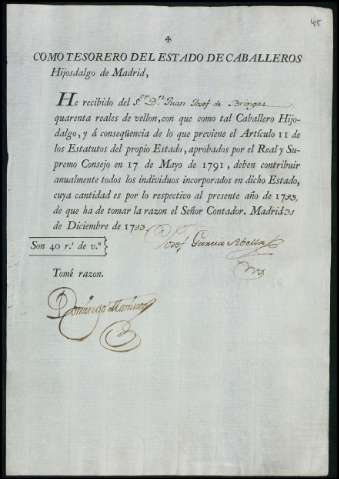 45
✠
COMO TESORERO DEL ESTADO DE CABALLEROS
Hijosdalgo de Madrid,
He recibido del S.or D.n Juan Josef de Bringas
quarenta reales de vellon, con que como tal Caballero Hijo-
dalgo, y á conseqüencia de lo que previene el Artículo 11 de
los Estatutos del propio Estado, aprobados por el Real y Su-
premo Consejo en 17 de Mayo de 1791, deben contribuir
anualmente todos los individuos incorporados en dicho Estado,
cuya cantidad es por lo respectivo al presente año de 1793,
de que ha de tomar la razon el Señor Contador. Madrid
de Diciembre de 1793.
Son 40 r.s de v.n
Josef Garcia
Tomé razon.
Domingo